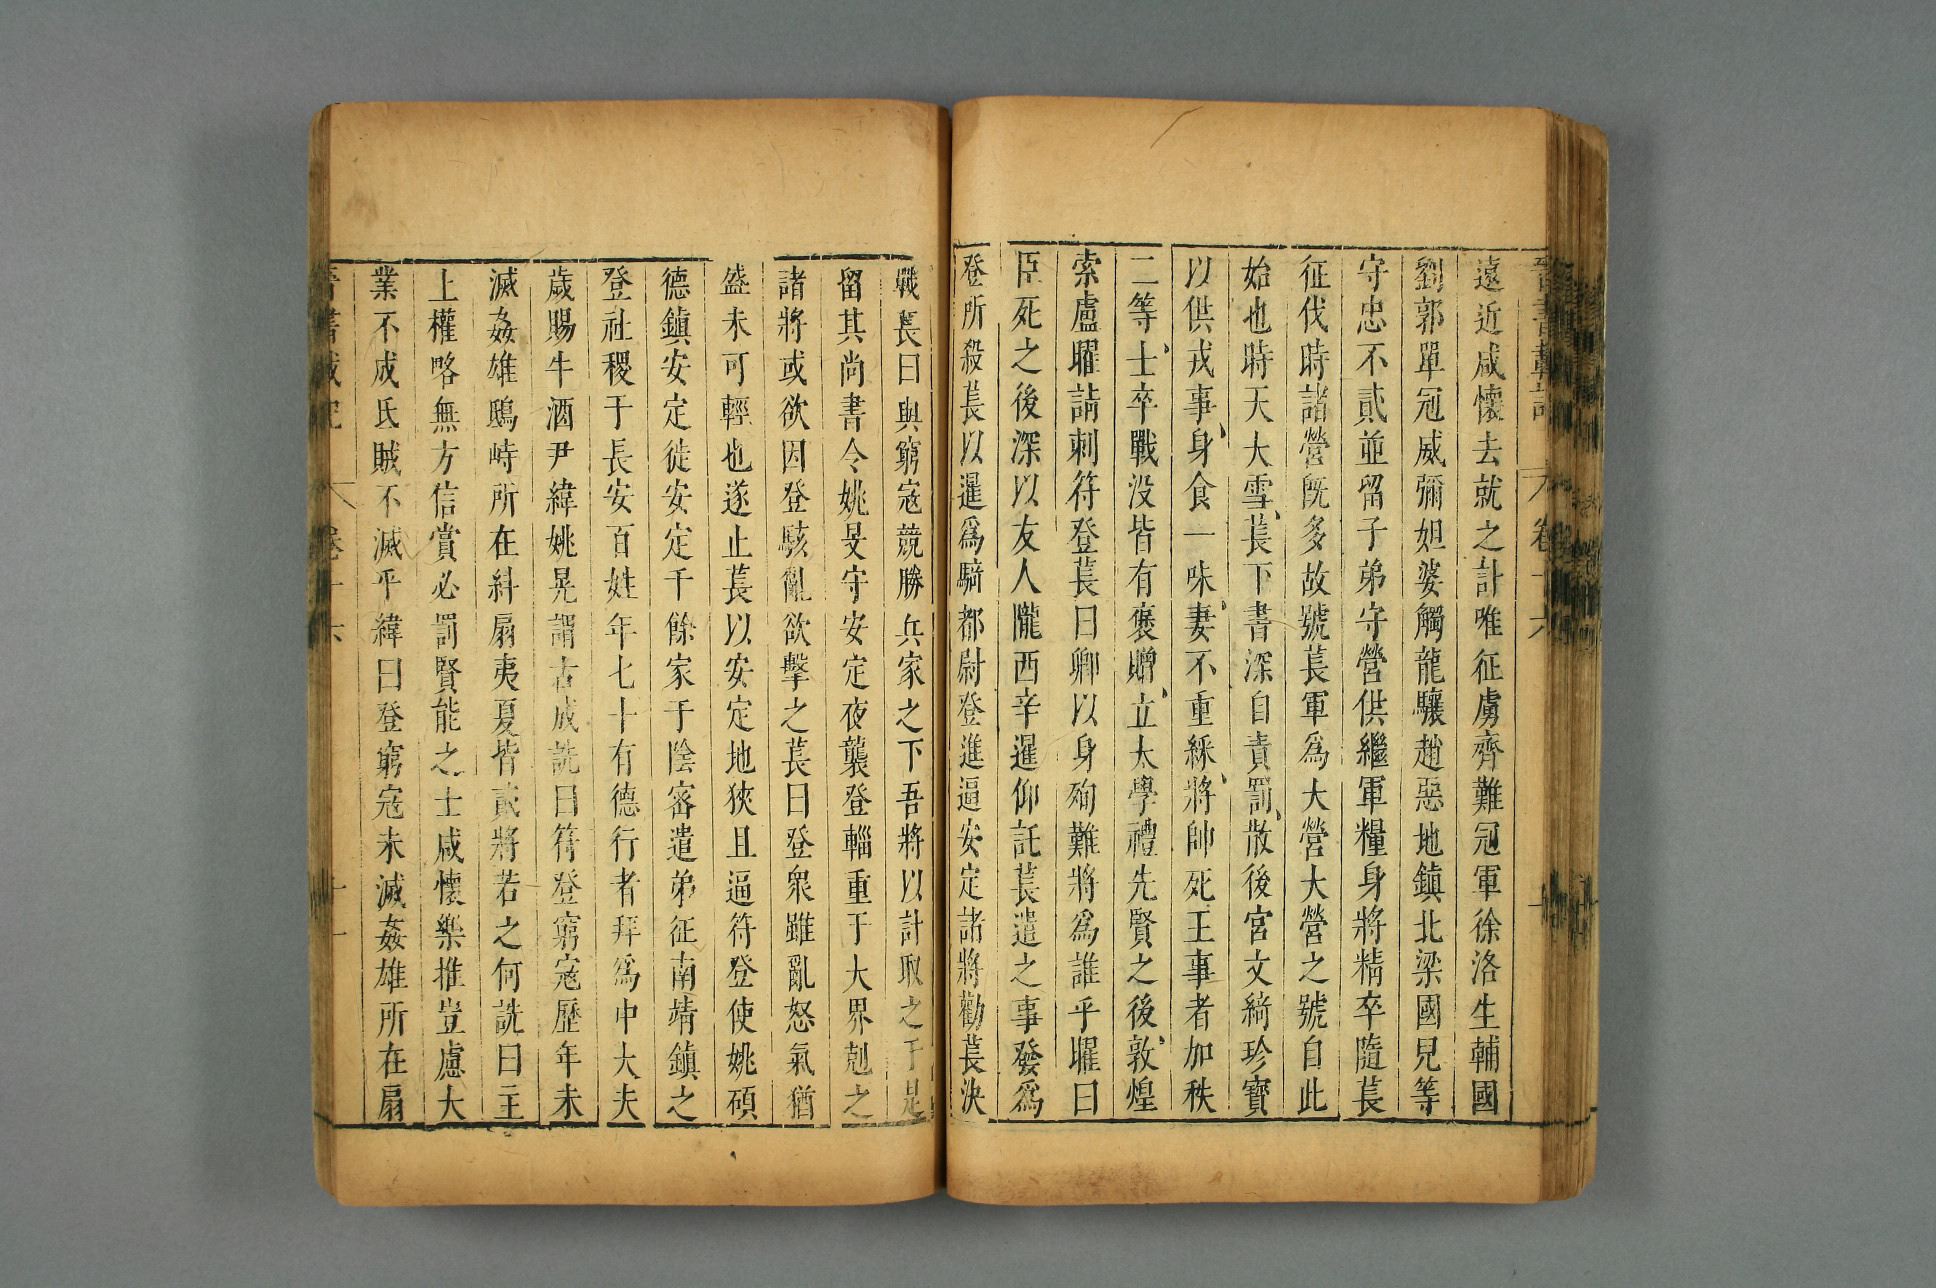 遠近咸懷去就之計唯征虜齊難冠軍徐洛生輔國
劉郭單冠威彌姐婆觸龍驤趙惡地鎮北梁國兒等
守忠不貳並留子弟守營供繼軍糧身將精卒隨萇
征伐時諸營既多故號萇軍爲大營大營之號自此
始也時天大雪萇下書深自責罰散後宮文綺珍寶
以供戎事身食一味妻不重綵將帥死王事者加秩
二等士卒戰没皆有褒贈立太學禮先賢之後敦煌
索盧曜請刺符登萇曰卿以身殉難將爲誰乎曜曰
臣死之後深以友人隴西辛暹仰託萇遣之事發爲
登所殺萇以暹爲騎都尉登進逼安定諸將勸萇決
戰萇曰與窮寇競勝兵家之下吾將以計取之于是
留其尚書令姚旻守安定夜襲登輜重于大界剋之
諸將或欲因登駭亂欲擊之萇曰登衆雖亂怒氣猶
盛未可輕也遂止萇以安定地狹且逼符登使姚碩
德鎮安定徙安定千餘家于陰密遣弟征南靖鎮之
登社稷于長安百姓年七十有德行者拜爲中大夫
歲賜牛酒尹緯姚晃謂古成詵曰符登窮寇歷年未
滅姦雄鴟峙所在糾扇夷夏皆貳將若之何詵曰主
上權略無方信賞必罰賢能之士咸懷樂推豈慮大
業不成氐賊不滅乎緯曰登窮寇未滅姦雄所在扇